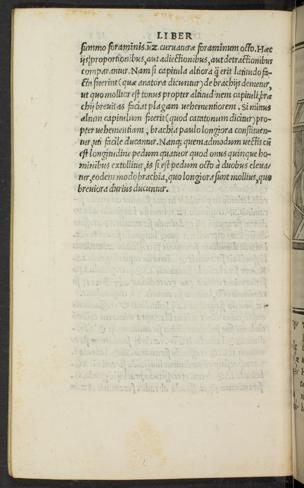 LIBER
summo foraminis. vz. curuaturæ foraminum octo. Hæc
ijs proportionibus, aut adiectionibus, aut detractionibus
comparantur. Nam si capitula altiora q̃ erit latitudo fa-
cta fuerint (quæ anatona dicuntur) de brachijs demetur,
ut quo mollior est tonus propter altitudinem capituli, bra
chij breuitas faciat plagam uehementiorem. Si minus
altum capitulum fuerit (quod catatonum dicitur) pro-
pter uehementiam, brachia paulo longiora constituen-
tur, uti facile ducantur. Nanq; quemadmodum uectis cũ
est longitudine pedum quatuor quod onus quinque ho-
minibus extollitur, is si est pedum octo à duobus eleua-
tur, eodem modo brachia, quo longiora sunt mollius, quo
breuiora durius ducuntur.